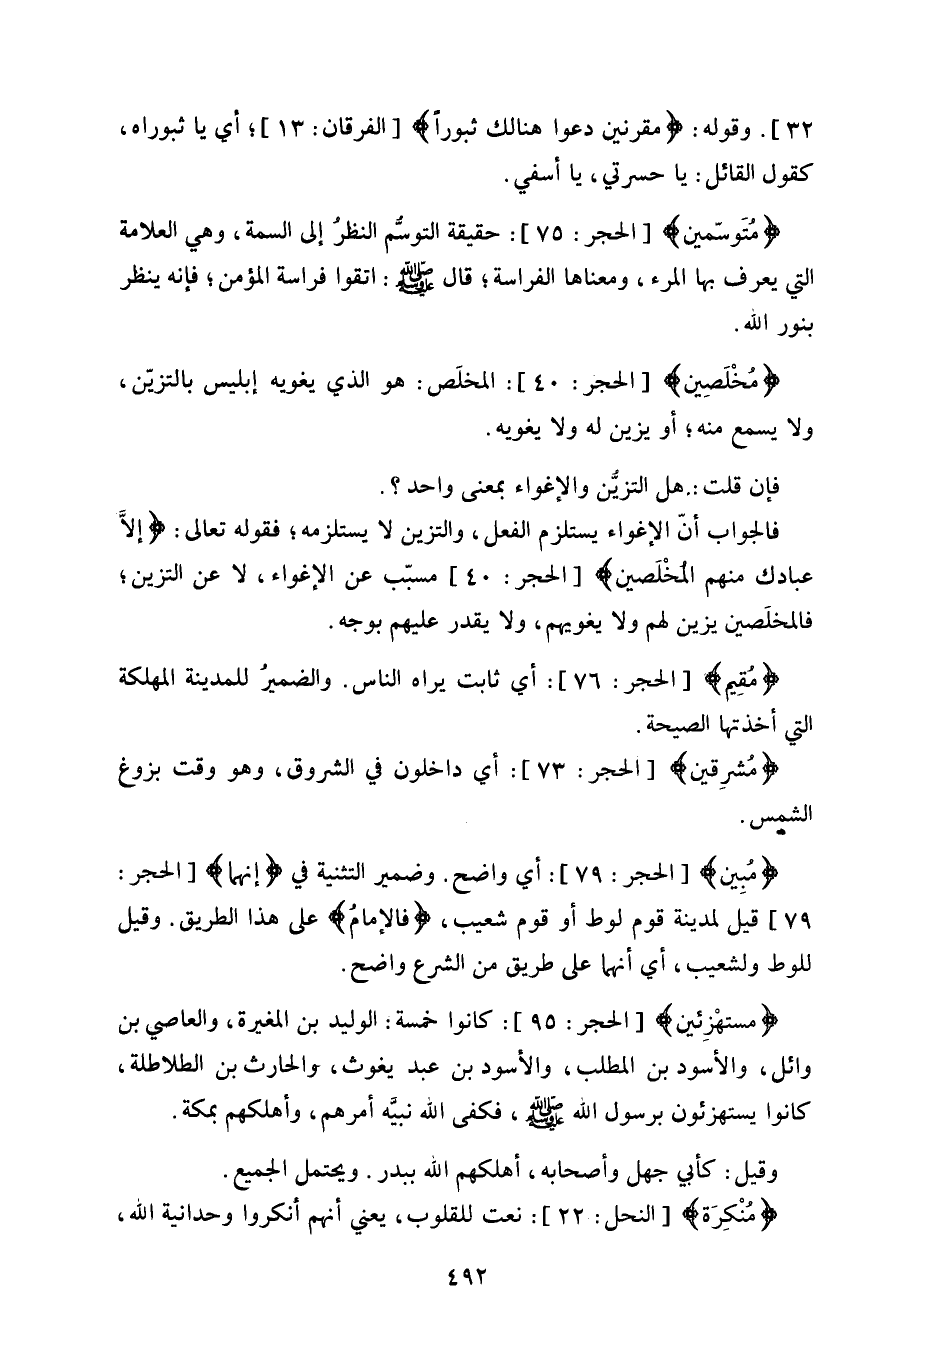 ٣٢ ]. وقوله: ﴿مقرنين دعوا هنالك ثبوراً﴾ [ الفرقان: ١٣ ]؛ أي يا ثبوراه،
كقول القائل: يا حسرتي، يا أسفي.
﴿مُتَوسّمين﴾ [ الحجر: ٧٥ ]: حقيقة التوسُّم النظرُ إلى السمة، وهي العلامة
التي يعرف بها المرء، ومعناها الفراسة؛ قال ﷺ: اتقوا فراسة المؤمن؛ فإنه ينظر
بنور الله.
﴿مُخْلَصِين﴾ [ الحجر: ٤٠ ]: المخلَص: هو الذي يغويه إبليس بالتزيّن،
ولا يسمع منه؛ أو يزين له ولا يغويه.
فإن قلت: هل التزيُّن والإغواء بمعنى واحد ؟.
فالجواب أنّ الإغواء يستلزم الفعل، والتزين لا يستلزمه؛ فقوله تعالى: ﴿إلاَّ
عبادك منهم المُخْلَصين﴾ [ الحجر: ٤٠ ] مسبّب عن الإغواء، لا عن التزين؛
فالمخلَصين يزين لهم ولا يغويهم، ولا يقدر عليهم بوجه.
﴿مُقِيم﴾ [ الحجر: ٧٦ ]: أي ثابت يراه الناس. والضميرُ للمدينة المهلكة
التي أخذتها الصيحة.
﴿مُشرِقين﴾ [ الحجر: ٧٣ ]: أي داخلون في الشروق، وهو وقت بزوغ
الشمس.
﴿مُبِين﴾ [ الحجر: ٧٩ ]: أي واضح. وضمير التثنية في ﴿إنهما﴾ [ الحجر:
٧٩ ] قيل لمدينة قوم لوط أو قوم شعيب، ﴿فالإمامُ﴾ على هذا الطريق. وقيل
للوط ولشعيب، أي أنهما على طريق من الشرع واضح.
﴿مستهْزِئين﴾ [ الحجر: ٩٥ ]: كانوا خمسة: الوليد بن المغيرة، والعاصي بن
وائل، والأسود بن المطلب، والأسود بن عبد يغوث، والحارث بن الطلاطلة،
كانوا يستهزئون برسول الله ﷺ، فكفى الله نبيَّه أمرهم، وأهلكهم بمكة.
وقيل: كأبي جهل وأصحابه، أهلكهم الله ببدر. ويحتمل الجميع.
﴿مُنْكِرَة﴾ [ النحل: ٢٢ ]: نعت للقلوب، يعني أنهم أنكروا وحدانية الله،
٤٩٢